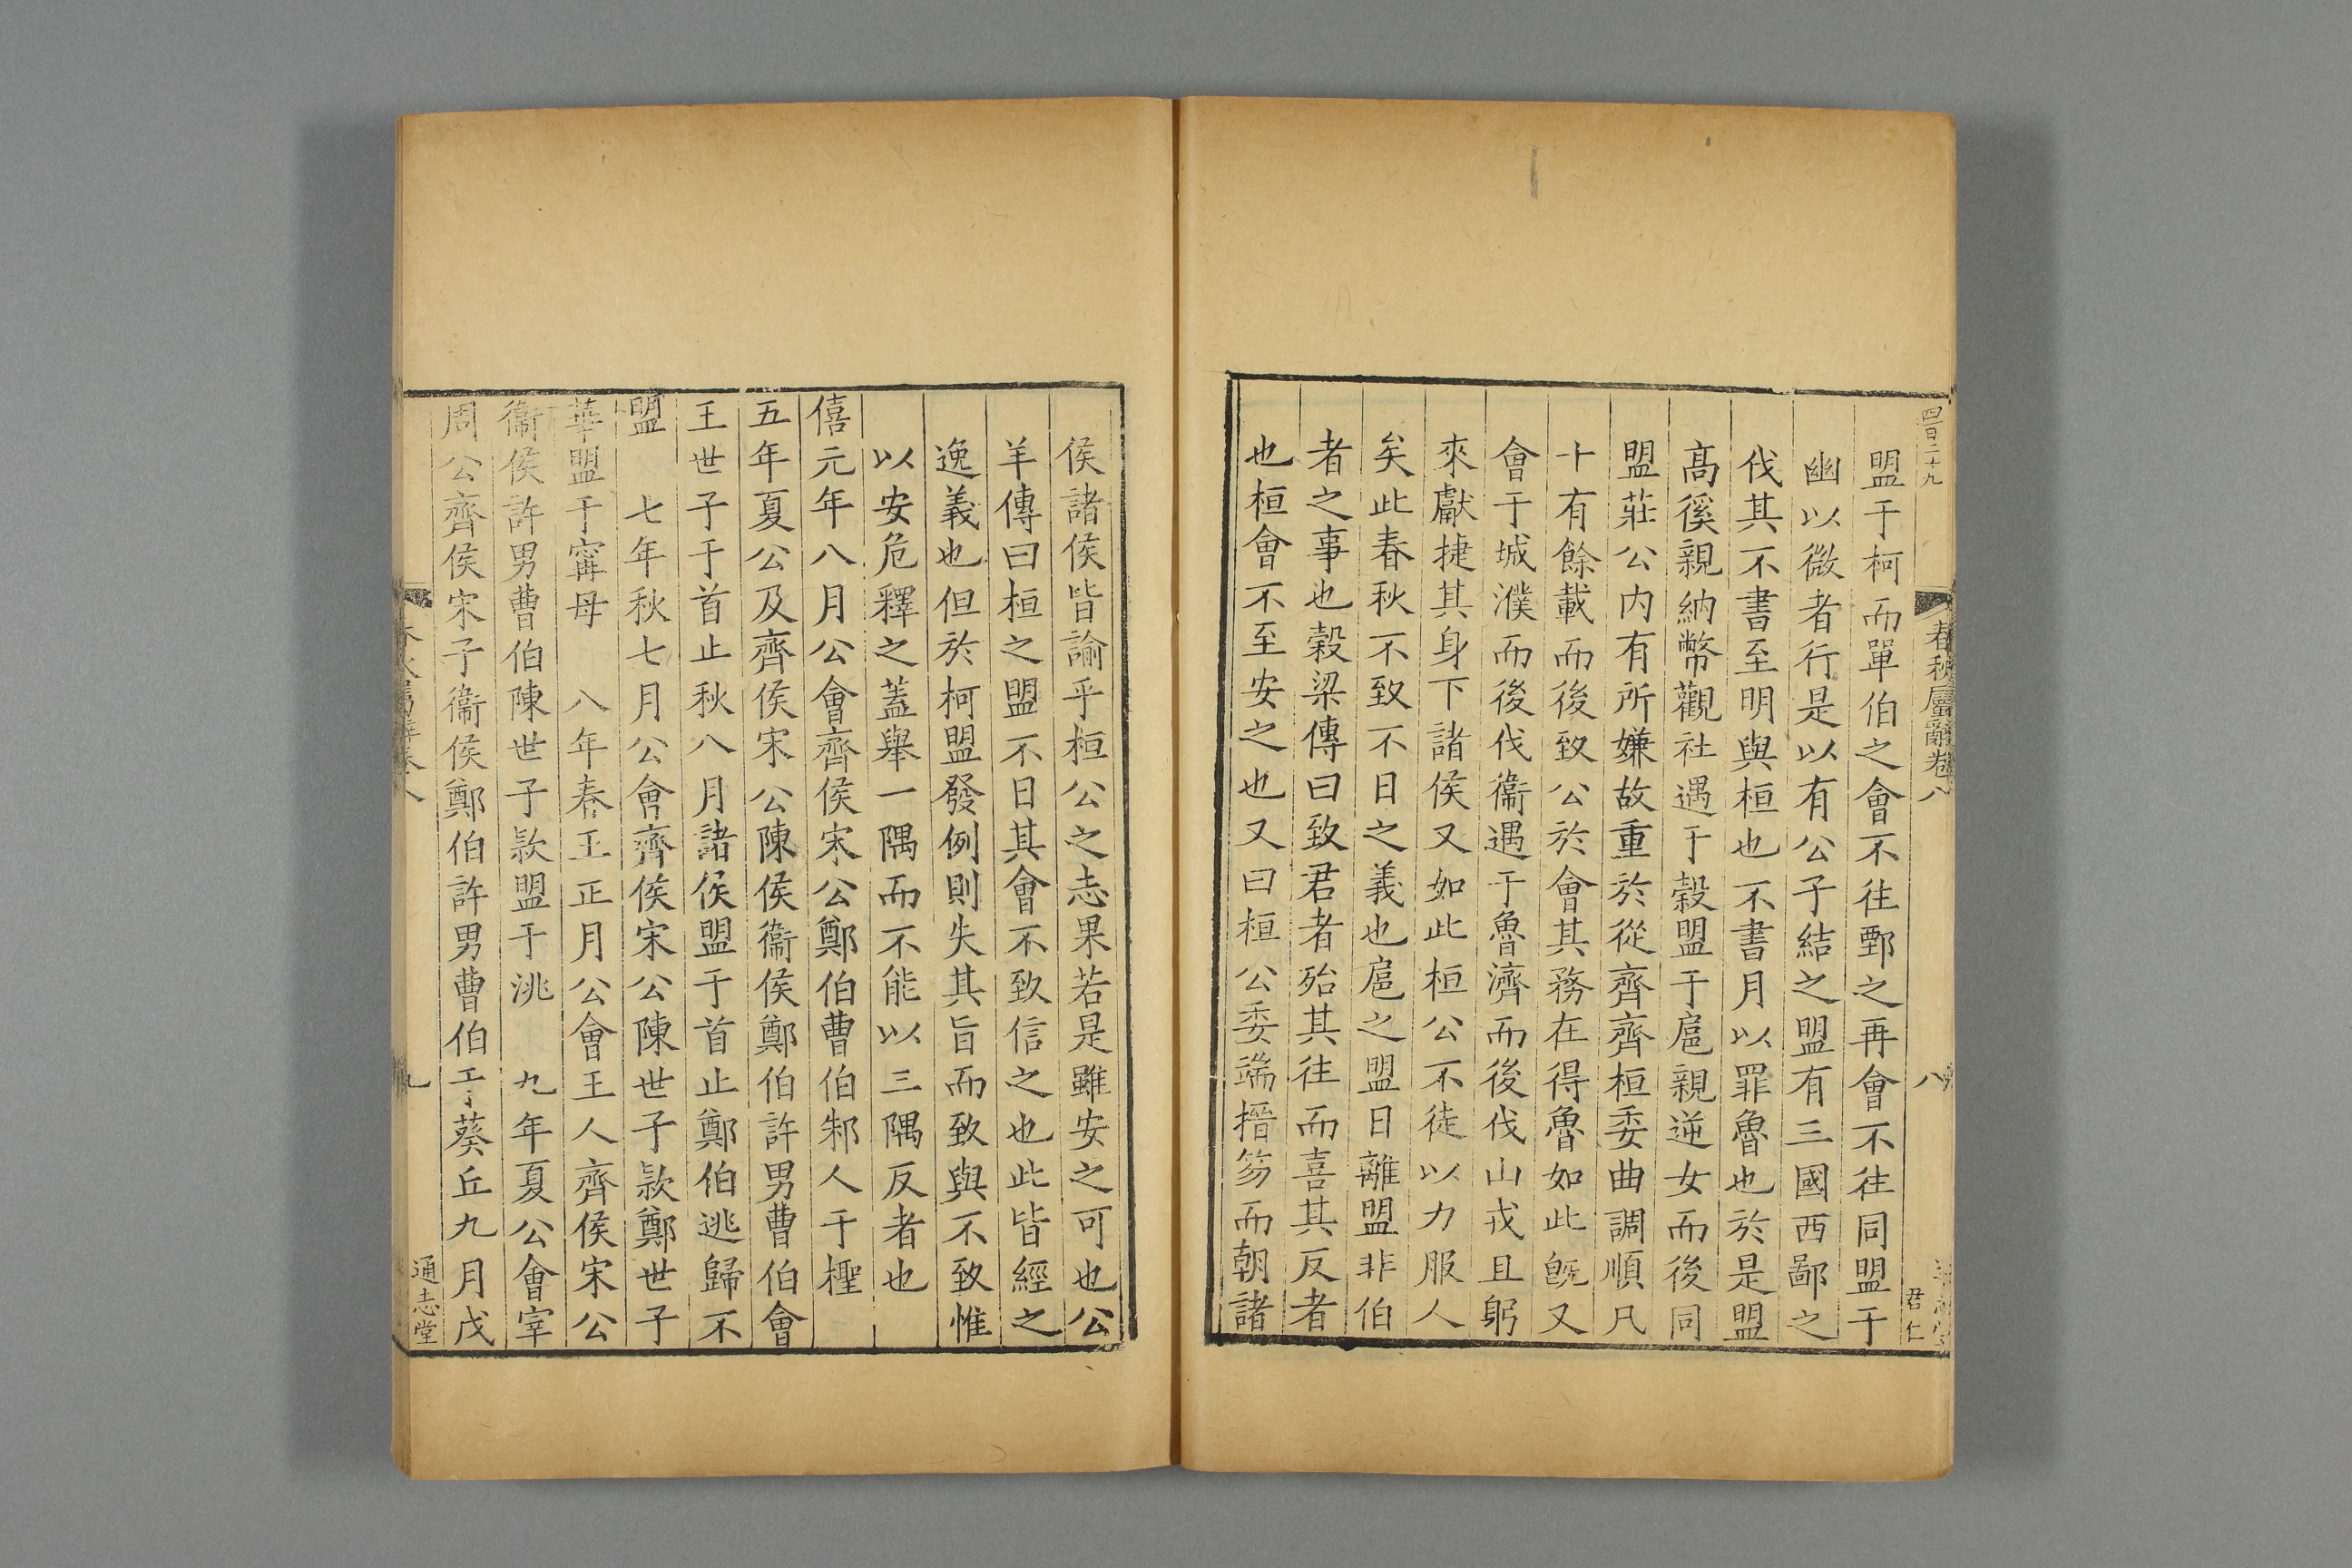 四百二十九
春秋屬辭卷八
八
君仁
盟于柯而單伯之會不往鄄之再會不往同盟于
幽以微者行是以有公子結之盟有三國西鄙之
伐其不書至明與桓也不書月以罪魯也於是盟
高徯親納幣觀社遇于穀盟于扈親逆女而後同
盟莊公内有所嫌故重於從齊齊桓委曲調順凡
十有餘載而後致公於會其務在得魯如此旣又
會于城濮而後伐衞遇于魯濟而後伐山戎且躬
來獻捷其身下諸侯又如此桓公不徒以力服人
矣此春秋不致不日之義也扈之盟日離盟非伯
者之事也穀梁傳曰致君者殆其往而喜其反者
也桓會不至安之也又曰桓公委端搢笏而朝諸
侯諸侯皆諭乎桓公之志果若是雖安之可也公
羊傳曰桓之盟不日其會不致信之也此皆經之
逸義也但於柯盟發例則失其旨而致與不致惟
以安危釋之蓋舉一隅而不能以三隅反者也
僖元年八月公會齊侯宋公鄭伯曹伯邾人于檉
五年夏公及齊侯宋公陳侯衞侯鄭伯許男曹伯會
王世子于首止秋八月諸侯盟于首止鄭伯逃歸不
盟　七年秋七月公會齊侯宋公陳世子款鄭世子
華盟于甯母　八年春王正月公會王人齊侯宋公
衞侯許男曹伯陳世子款盟于洮　九年夏公會宰
周公齊侯宋子衞侯鄭伯許男曹伯于葵丘九月戊
九
通志堂